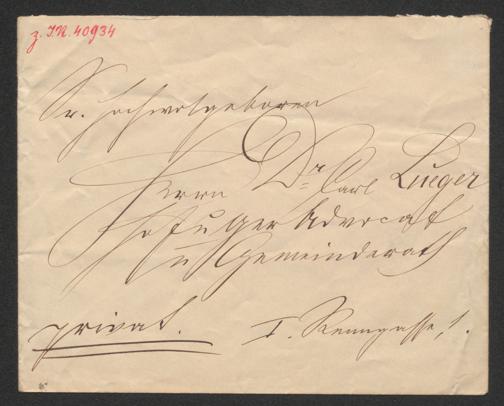 z. I.N. 40934
Sr. Hochwolgeboren
Herrn Dr. Carl Lueger
Hof u Ger Advocat
u Gemeinderath
privat.
I. Renngasse 1.